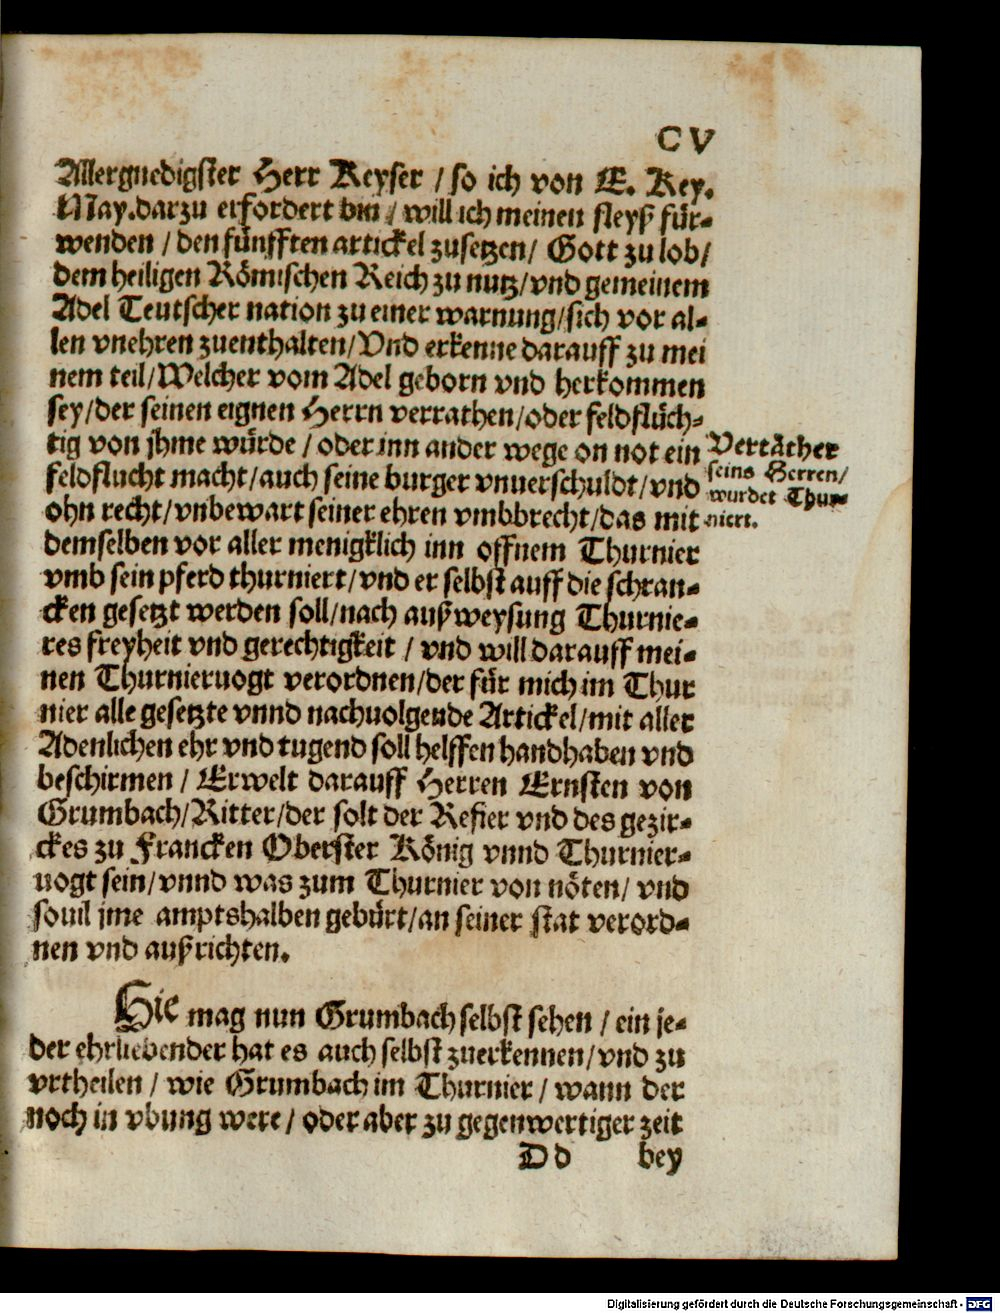 CV
Allergnedigster Herr Keyser / so ich von E. Key.
May. darzu erfordert bin / will ich meinen fleyß für-
wenden / den fünfften artickel zusetzen / Gott zu lob /
dem heiligen Römischen Reich zu nutz / vnd gemeinem
Adel Teutscher nation zu einer warnung / sich vor al-
len vnehren zuenthalten / Vnd erkenne darauff zu mei
nem teil / Welcher vom Adel geborn vnd herkommen
sey / der seinen eignen Herrn verrathen / oder feldflüch-
tig von jhme würde / oder inn ander wege on not ein
feldflucht macht / auch seine burger vnuerschuldt / vnd
ohn recht / vnbewart seiner ehren vmbbrecht / das mit
demselben vor aller menigklich inn offnem Thurnier
vmb sein pferd thurniert / vnd er selbst auff die schran-
cken gesetzt werden soll / nach außweysung Thurnie-
res freyheit vnd gerechtigkeit / vnd will darauff mei-
nen Thurnieruogt verordnen / der für mich im Thur
nier alle gesetzte vnnd nachuolgende Artickel / mit aller
Adenlichen ehr vnd tugend soll helffen handhaben vnd
beschirmen / Erwelt darauff Herren Ernsten von
Grumbach / Ritter / der solt der Refier vnd des gezir-
ckes zu Francken Oberster König vnnd Thurnier-
uogt sein / vnnd was zum Thurnier von nöten / vnd
souil jme amptshalben gebürt / an seiner stat verord-
nen vnd außrichten.
Verräther
seins Herren /
wurdet Thur-
niert.
Hie mag nun Grumbach selbst sehen / ein je-
der ehrliebender hat es auch selbst zuerkennen / vnd zu
vrtheilen / wie Grumbach im Thurnier / wann der
noch in vbung were / oder aber zu gegenwertiger zeit
Dd bey
Digitalisierung gefördert durch die Deutsche Forschungsgemeinschaft - DFG